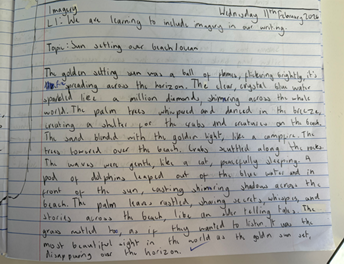 Imagery
Wednesday 11th February, 2026
LI: We are learning to include imagery in our writing.
Topic: Sun setting over beach/ocean
The golden setting sun was a ball of flames, flickering brightly, it's
spreading across the horizon. The clear, crystal blue water
sparkled like a million diamonds, shimering across the whole
world. The palm trees whispered and danced in the breeze,
creating a shelter for the crabs and creatures on the land.
The sand blended with the golden light, like a campfire. The
trees towered over the beach. Crabs scuttled along the
The waves were gentle, like a cat, peacefully sleeping. A
pod of dolphins leaped out of the blue water and in
front of the sun, casting shimering shadows across the
beach. The palm leaves rustled, sharing secrets, whispers, and
stories across the beach, like an elder telling tales. The
grass rustled too, as if they wanted to listen. It was the
most beautiful sight in the world as the golden sun set,
disappearing over the horizon.